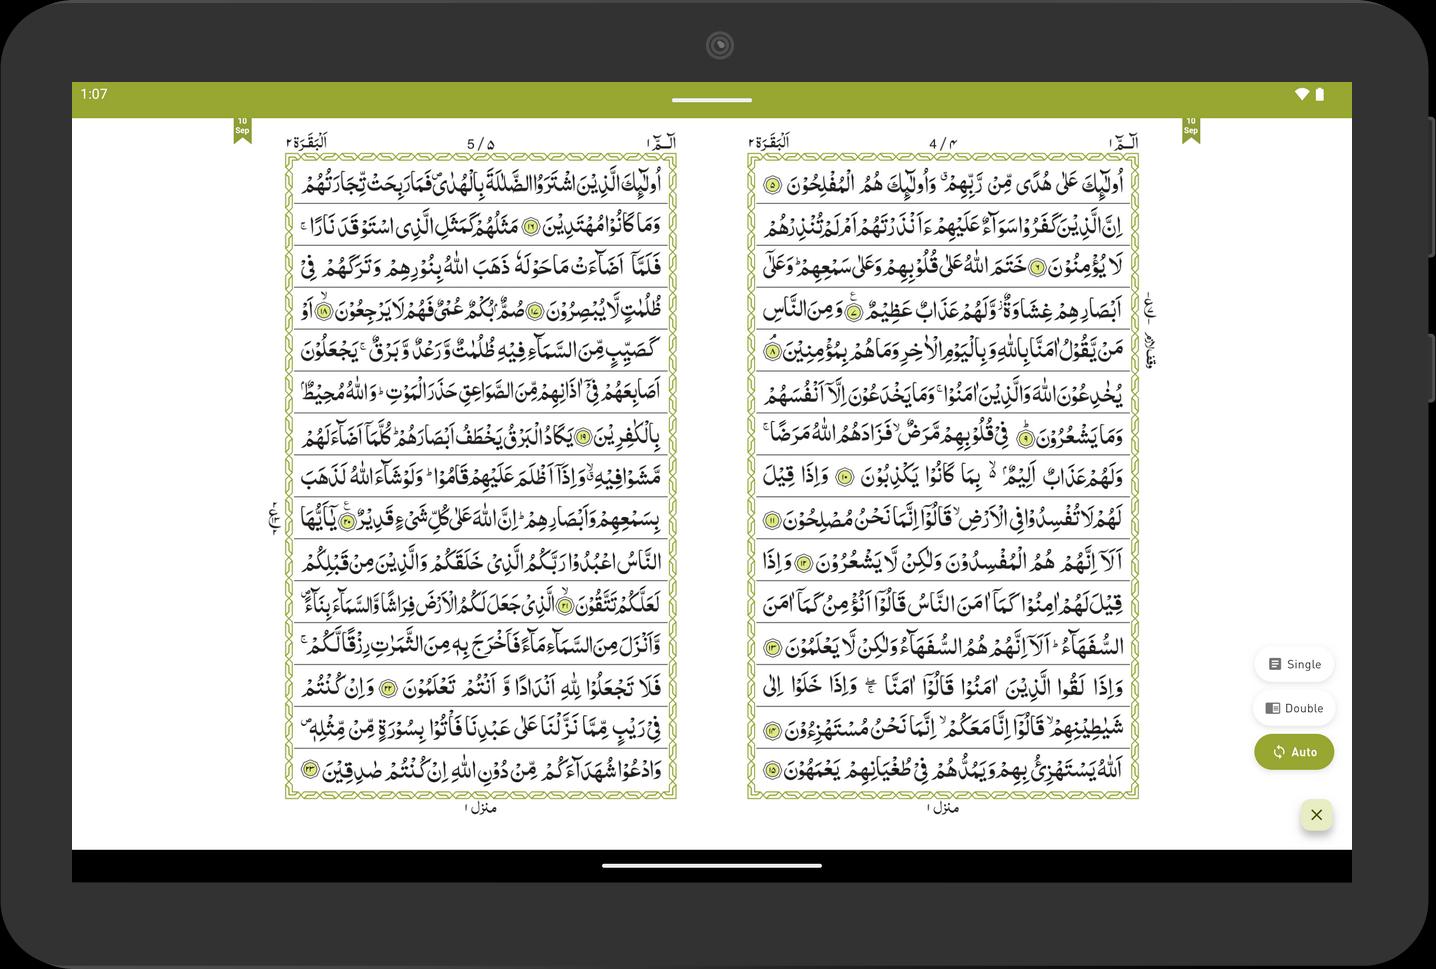 1:07
10
Sep
10
Sep
الٓمّٓ ۱
4/۴
اَلْبَقَرَة ۲
اُولٰٓئِكَ عَلٰى هُدًى مِّنْ رَّبِّهِمْ ۗ وَاُولٰٓئِكَ هُمُ الْمُفْلِحُوْنَ ۵
اِنَّ الَّذِيْنَ كَفَرُوْا سَوَآءٌ عَلَيْهِمْ ءَاَنْذَرْتَهُمْ اَمْ لَمْ تُنْذِرْهُمْ
لَا يُؤْمِنُوْنَ ۶ خَتَمَ اللّٰهُ عَلٰى قُلُوْبِهِمْ وَعَلٰى سَمْعِهِمْ ؕ وَعَلٰٓى
اَبْصَارِهِمْ غِشَاوَةٌ ؗ وَّلَهُمْ عَذَابٌ عَظِيْمٌ ۷ وَمِنَ النَّاسِ
مَنْ يَّقُوْلُ اٰمَنَّا بِاللّٰهِ وَبِالْيَوْمِ الْاٰخِرِ وَمَا هُمْ بِمُؤْمِنِيْنَ ۘ ۸
يُخٰدِعُوْنَ اللّٰهَ وَالَّذِيْنَ اٰمَنُوْا ۚ وَمَا يَخْدَعُوْنَ اِلَّاۤ اَنْفُسَهُمْ
وَمَا يَشْعُرُوْنَ ؕ ۹ فِىْ قُلُوْبِهِمْ مَّرَضٌ ۙ فَزَادَهُمُ اللّٰهُ مَرَضًا ۚ
وَلَهُمْ عَذَابٌ اَلِيْمٌ ۢ ۙ بِمَا كَانُوْا يَكْذِبُوْنَ ۱۰ وَاِذَا قِيْلَ
لَهُمْ لَا تُفْسِدُوْا فِى الْاَرْضِ ۙ قَالُوْۤا اِنَّمَا نَحْنُ مُصْلِحُوْنَ ۱۱
اَلَاۤ اِنَّهُمْ هُمُ الْمُفْسِدُوْنَ وَلٰكِنْ لَّا يَشْعُرُوْنَ ۱۲ وَاِذَا
قِيْلَ لَهُمْ اٰمِنُوْا كَمَاۤ اٰمَنَ النَّاسُ قَالُوْۤا اَنُؤْمِنُ كَمَاۤ اٰمَنَ
السُّفَهَآءُ ؕ اَلَاۤ اِنَّهُمْ هُمُ السُّفَهَآءُ وَلٰكِنْ لَّا يَعْلَمُوْنَ ۱۳
وَاِذَا لَقُوا الَّذِيْنَ اٰمَنُوْا قَالُوْۤا اٰمَنَّا ۖۚ وَاِذَا خَلَوْا اِلٰى
شَيٰطِيْنِهِمْ ۙ قَالُوْۤا اِنَّا مَعَكُمْ ۙ اِنَّمَا نَحْنُ مُسْتَهْزِءُوْنَ ۱۴
اَللّٰهُ يَسْتَهْزِئُ بِهِمْ وَيَمُدُّهُمْ فِىْ طُغْيَانِهِمْ يَعْمَهُوْنَ ۱۵
منزل ۱
الٓمّٓ ۱
5/۵
اَلْبَقَرَة ۲
اُولٰٓئِكَ الَّذِيْنَ اشْتَرَوُا الضَّلٰلَةَ بِالْهُدٰى ۪ فَمَا رَبِحَتْ تِّجَارَتُهُمْ
وَمَا كَانُوْا مُهْتَدِيْنَ ۱۶ مَثَلُهُمْ كَمَثَلِ الَّذِى اسْتَوْقَدَ نَارًا ۚ
فَلَمَّاۤ اَضَآءَتْ مَا حَوْلَهٗ ذَهَبَ اللّٰهُ بِنُوْرِهِمْ وَتَرَكَهُمْ فِىْ
ظُلُمٰتٍ لَّا يُبْصِرُوْنَ ۱۷ صُمٌّ ۢ بُكْمٌ عُمْىٌ فَهُمْ لَا يَرْجِعُوْنَ ۙ ۱۸ اَوْ
كَصَيِّبٍ مِّنَ السَّمَآءِ فِيْهِ ظُلُمٰتٌ وَّرَعْدٌ وَّبَرْقٌ ۚ يَجْعَلُوْنَ
اَصَابِعَهُمْ فِىْۤ اٰذَانِهِمْ مِّنَ الصَّوَاعِقِ حَذَرَ الْمَوْتِ ؕ وَاللّٰهُ مُحِيْطٌ ۢ
بِالْكٰفِرِيْنَ ۱۹ يَكَادُ الْبَرْقُ يَخْطَفُ اَبْصَارَهُمْ ؕ كُلَّمَاۤ اَضَآءَ لَهُمْ
مَّشَوْا فِيْهِ ۙ وَاِذَاۤ اَظْلَمَ عَلَيْهِمْ قَامُوْا ؕ وَلَوْ شَآءَ اللّٰهُ لَذَهَبَ
بِسَمْعِهِمْ وَاَبْصَارِهِمْ ؕ اِنَّ اللّٰهَ عَلٰى كُلِّ شَىْءٍ قَدِيْرٌ ۲۰ يٰۤاَيُّهَا
النَّاسُ اعْبُدُوْا رَبَّكُمُ الَّذِىْ خَلَقَكُمْ وَالَّذِيْنَ مِنْ قَبْلِكُمْ
لَعَلَّكُمْ تَتَّقُوْنَ ۙ ۲۱ الَّذِىْ جَعَلَ لَكُمُ الْاَرْضَ فِرَاشًا وَّالسَّمَآءَ بِنَآءً ۪
وَّاَنْزَلَ مِنَ السَّمَآءِ مَآءً فَاَخْرَجَ بِهٖ مِنَ الثَّمَرٰتِ رِزْقًا لَّكُمْ ۚ
فَلَا تَجْعَلُوْا لِلّٰهِ اَنْدَادًا وَّ اَنْتُمْ تَعْلَمُوْنَ ۲۲ وَاِنْ كُنْتُمْ
فِىْ رَيْبٍ مِّمَّا نَزَّلْنَا عَلٰى عَبْدِنَا فَاْتُوْا بِسُوْرَةٍ مِّنْ مِّثْلِهٖ ۪
وَادْعُوْا شُهَدَآءَكُمْ مِّنْ دُوْنِ اللّٰهِ اِنْ كُنْتُمْ صٰدِقِيْنَ ۲۳
منزل ۱
Single
Double
Auto